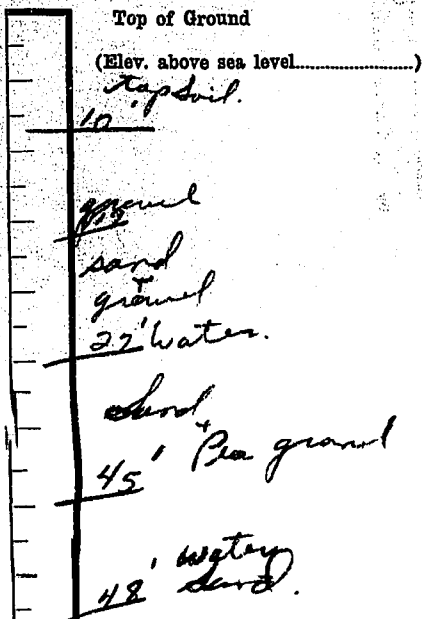 Top of Ground
(Elev. above sea level....................)
topsoil.
10'
gravel
sand
+
gravel
27' water.
Sand
+
45' Pea gravel
water
48' Sand.